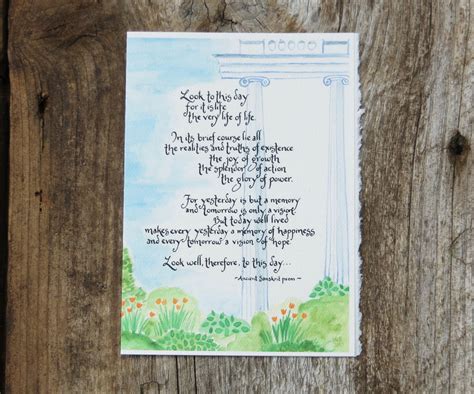 Look to this day
for it is life
the very life of life.
In its brief course lie all
the realities and truths of existence
the joy of growth
the splendor of action
the glory of power.
For yesterday is but a memory
and tomorrow is only a vision.
But today well lived
makes every yesterday a memory of happiness
and every tomorrow a vision of hope.
Look well, therefore, to this day...
~Ancient Sanskrit poem~